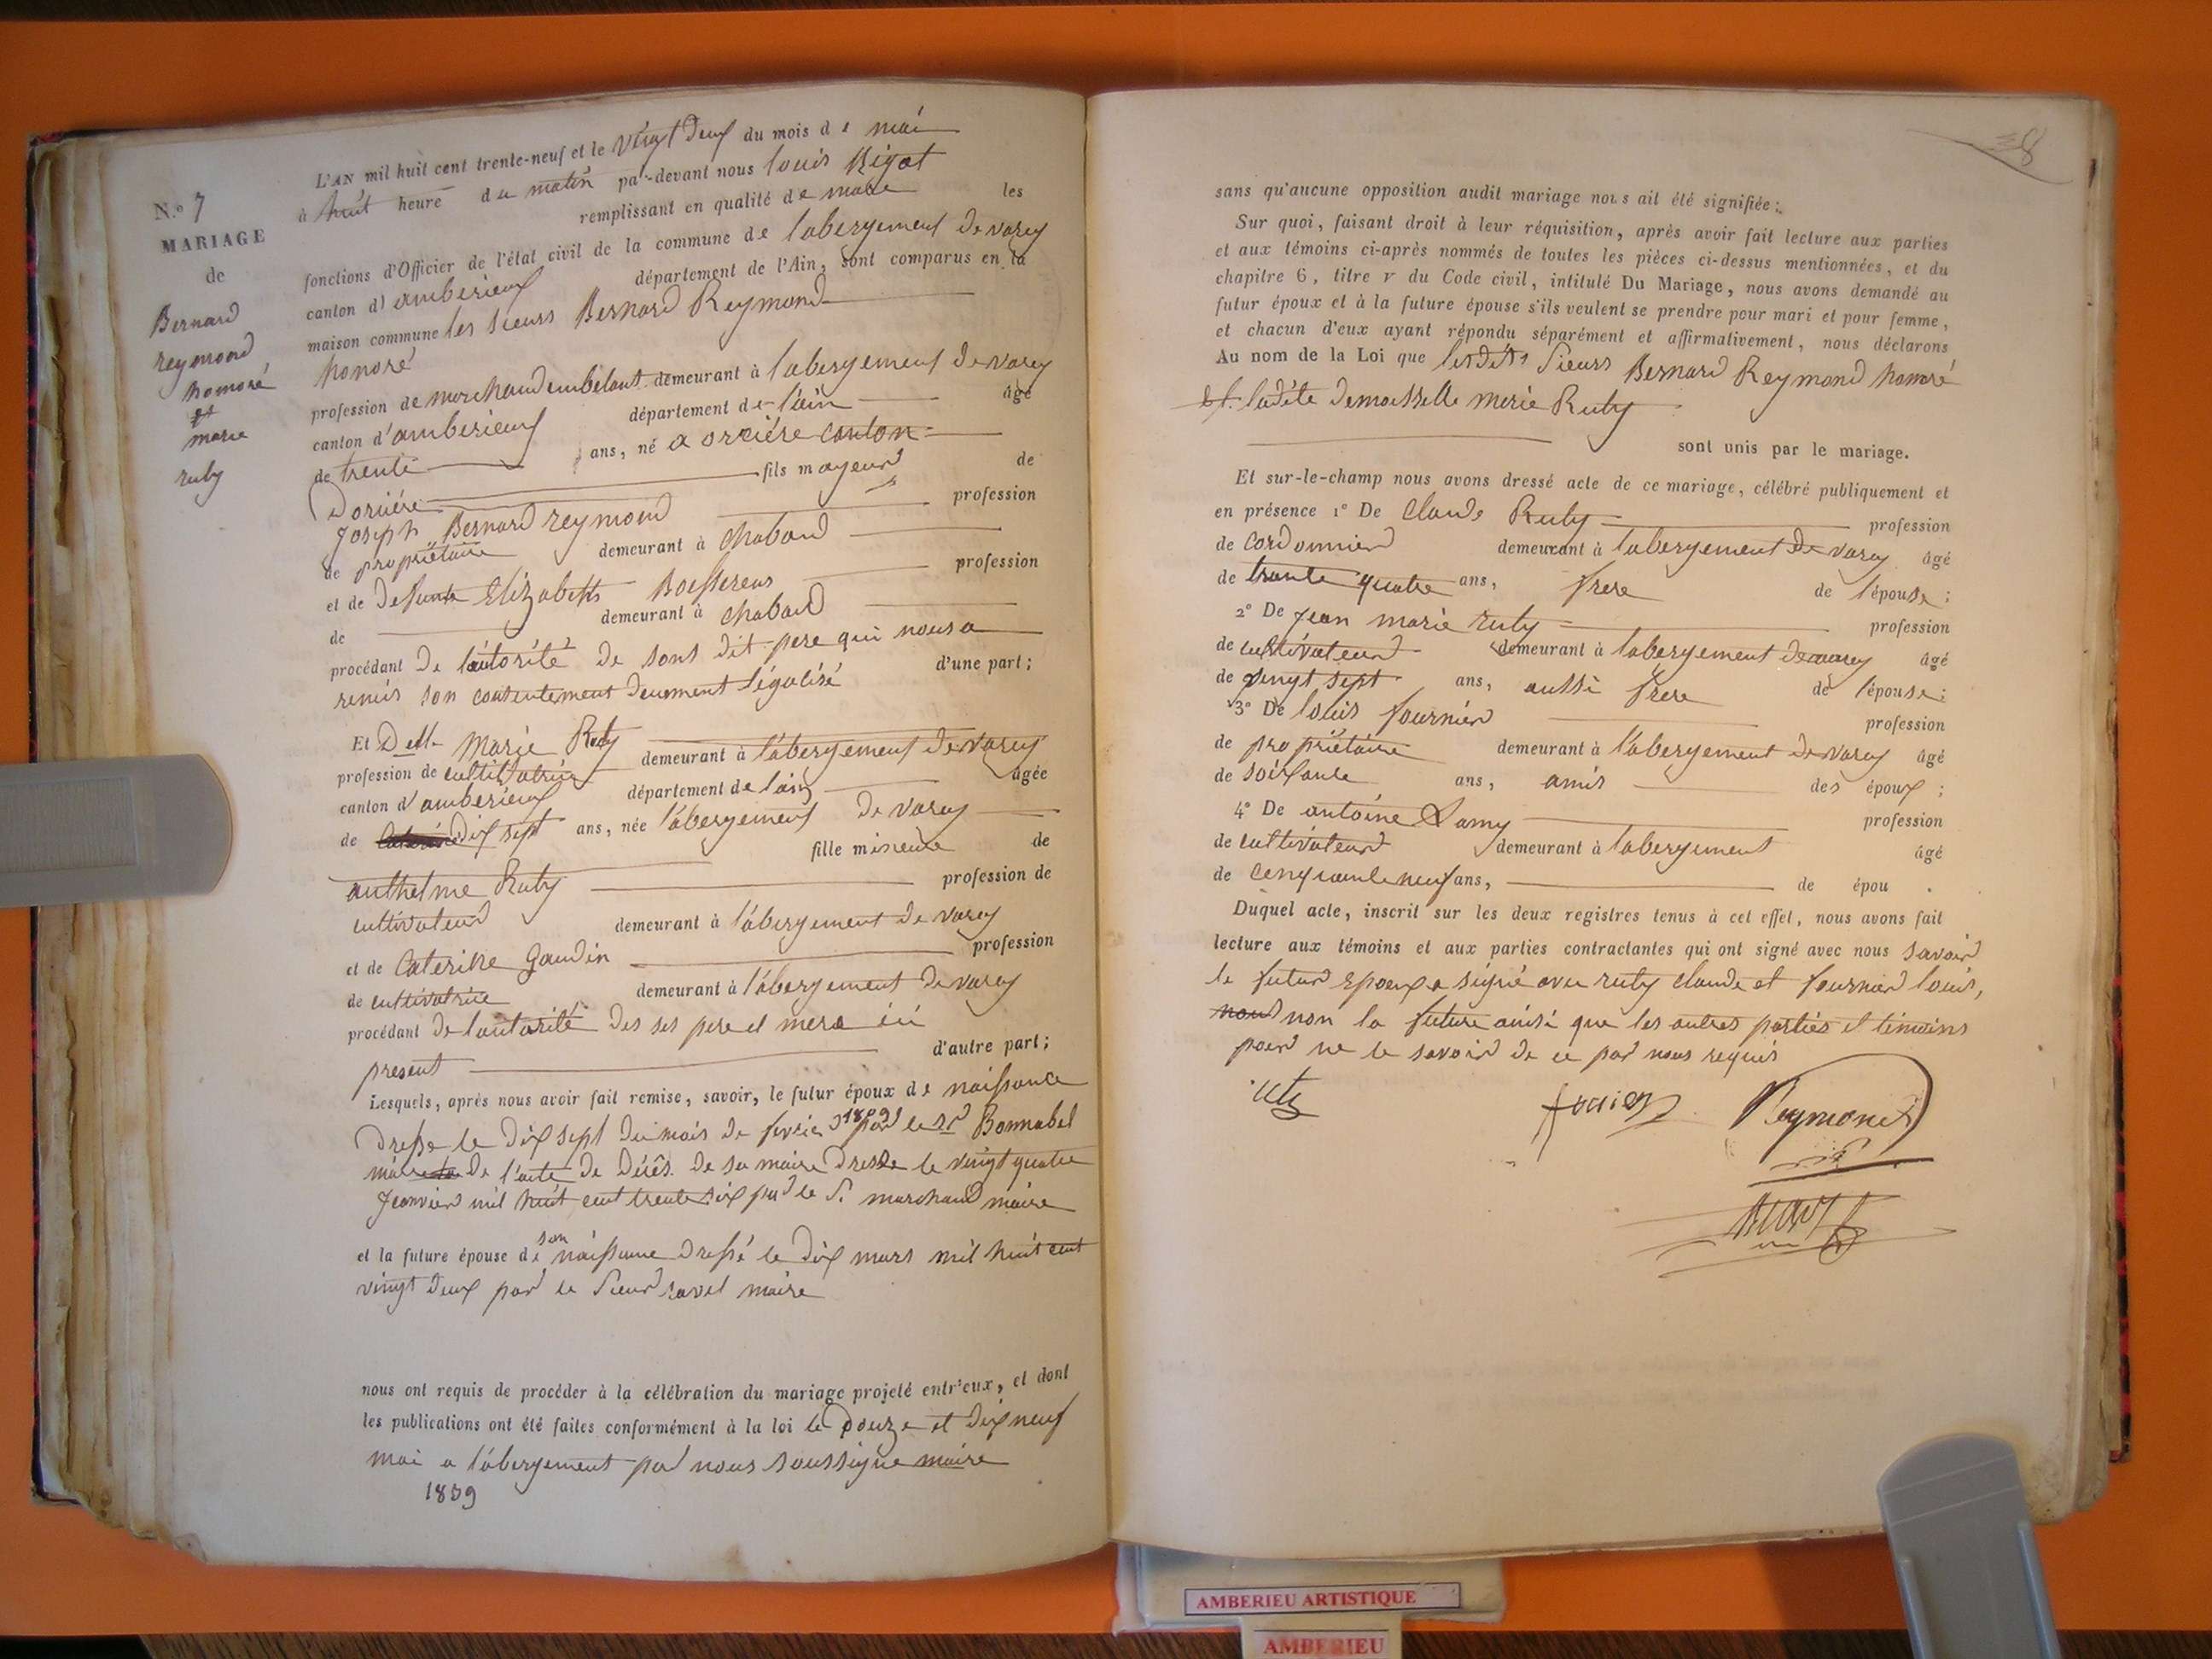 N.° 7
MARIAGE
de
Bernard
reymond
honoré
et
marie
ruby
L'AN mil huit cent trente-neuf et le vingt deux du mois de mai
à huit heure du matin par-devant nous louis Bigot
remplissant en qualité de maire les
fonctions d'Officier de l'état civil de la commune de labergement de varey
canton d'amberieux département de l'Ain, sont comparus en la
maison commune les sieurs Bernard Reymond
honoré
profession de marchand embulant demeurant à labergement de varey
canton d'amberieux département de l'ain âgé
de trente ans, né a orciére canton
Dorciére fils mageur de
Joseph Bernard reymond profession
de propriétaire demeurant à chabaud
et de defunte Elizabeth profession
de demeurant à chabaud
procédant de l'autorité de sont dit pere qui nous a
remis son contentement duement légalisé d'une part;
Et Delle Marie Ruby demeurant à l'abergement de varey
profession de cultivatrice
canton d'amberieux département de lain âgée
de dix sept ans, née l'abergement de varey
fille mineure de
anthelme Ruby profession de
cultivateur demeurant à l'abergement de varey
et de Caterine Gaudin profession
de cultivatrice demeurant à l'abergement de varey
procédant de l'autorité des ses pere et mere ici
present d'autre part;
Lesquels, après nous avoir fait remise, savoir, le futur époux de naissance
dresse le dix sept du mois de fevrier 1809 par le sr Bonnabel
maire de l'acte de décês de sa maire dresse le vingt quatre
Jeanvier mil huit cent trente six par le Sr marchand maire
et la future épouse de son naissance dressé le dix mars mil huit cent
vingt deux par le Sieur savel maire
nous ont requis de procéder à la célébration du mariage projeté entr'eux, et dont
les publications ont été faites conformément à la loi le douze et dix neuf
mai a l'abergement par nous soussigne maire
1839
38
sans qu'aucune opposition audit mariage nous ait été signifiée;
Sur quoi, faisant droit à leur réquisition, après avoir fait lecture aux parties
et aux témoins ci-après nommés de toutes les pièces ci-dessus mentionnées, et du
chapitre 6, titre v du Code civil, intitulé Du Mariage, nous avons demandé au
futur époux et à la future épouse s'ils veulent se prendre pour mari et pour femme,
et chacun d'eux ayant répondu séparément et affirmativement, nous déclarons
Au nom de la Loi que lesdits Sieurs Bernard Reymond honoré
et ladite Demoisselle merie Ruby
sont unis par le mariage.
Et sur-le-champ nous avons dressé acte de ce mariage, célébré publiquement et
en présence 1° De Claude Ruby profession
de cordonnier demeurant à labergement de varey âgé
de trante quatre ans, frere de l'épouse;
2° De Jean marie ruby profession
de cultivateur demeurant à labergement de varey âgé
de vingt sept ans, aussi frere de l'épouse;
3° De louis fournier profession
de propriétaire demeurant à l'abergement de varey âgé
de soixante ans, amis des époux;
4° De antoine Lamy profession
de cultivateur demeurant à labergement âgé
de cenquante neuf ans, de épou .
Duquel acte, inscrit sur les deux registres tenus à cet effet, nous avons fait
lecture aux témoins et aux parties contractantes qui ont signé avec nous savoir
le futur Epoux a signé avec ruby claude et fournier louis,
nous non la future ainsi que les autres parties et témoins
pour ne le savoir de ce par nous requis
Reymond
AMBERIEU ARTISTIQUE
AMBERIEU